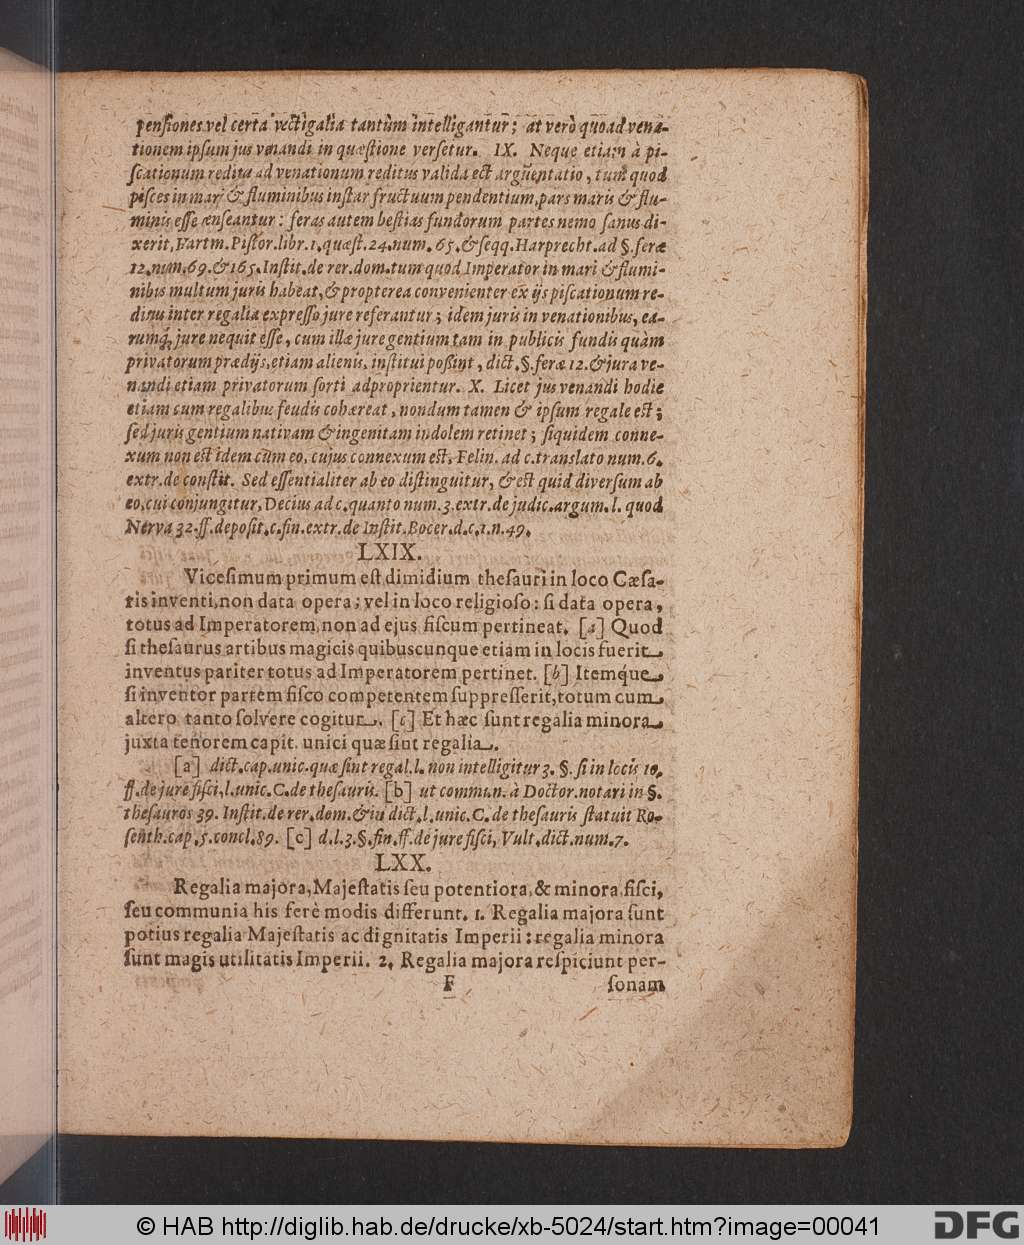 penſiones vel certa vectigalia tantùm intelligantur; at verò quoad vena-
tionem ipſum jus venandi in quæſtione verſetur. IX. Neque etiam à pi-
ſcationum reditu ad venationum reditus valida eſt argumentatio, tum quod
piſces in mari & fluminibus inſtar fructuum pendentium, pars maris & flu-
minis eſſe cenſeantur: feras autem beſtias fundorum partes nemo ſanus di-
xerit, Hartm. Piſtor. libr. 1. quæſt. 24. num. 65. & ſeqq. Harprecht. ad §. feræ
12. num. 69. & 165. Inſtit. de rer. dom. tum quod Imperator in mari & flumi-
nibus multum juris habeat, & propterea convenienter ex ijs piſcationum re-
ditus inter regalia expreſſo jure referantur; idem juris in venationibus, ea-
rumq́; jure nequit eſſe, cum illæ jure gentium tam in publicis fundis quàm
privatorum prædijs, etiam alienis, inſtitui poßint, dict. §. feræ 12. & jura ve-
nandi etiam privatorum ſorti adproprientur. X. Licet jus venandi hodie
etiam cum regalibus feudis cohæreat, nondum tamen & ipſum regale eſt;
ſed juris gentium nativam & ingenitam indolem retinet; ſiquidem conne-
xum non eſt idem cum eo, cujus connexum eſt, Felin. ad c. translato num. 6.
extr. de conſtit. Sed eſſentialiter ab eo diſtinguitur, & eſt quid diverſum ab
eo, cui conjungitur, Decius ad c. quanto num. 3. extr. de judic. argum. l. quod
Nerva 32. ff. depoſit. c. fin. extr. de Inſtit. Bocer. d. c. 1. n. 49.
LXIX.
Viceſimum primum eſt dimidium theſauri in loco Cæſa-
ris inventi, non data opera; vel in loco religioſo: ſi data opera,
totus ad Imperatorem, non ad ejus fiſcum pertineat. [a] Quod
ſi theſaurus artibus magicis quibuscunque etiam in locis fuerit
inventus pariter totus ad Imperatorem pertinet. [b] Itemq́ue,
ſi inventor partem fiſco competentem ſuppreſſerit, totum cum
altero tanto ſolvere cogitur. [c] Et hæc ſunt regalia minora,
juxta tenorem capit. unici quæ ſint regalia.
[a] dict. cap. unic. quæ ſint regal. l. non intelligitur 3. §. ſi in locis 10.
ff. de jure fiſci, l. unic. C. de theſauris. [b] ut commun. à Doctor. notari in §.
theſauros 39. Inſtit. de rer. dom. & in dict. l. unic. C. de theſauris ſtatuit Ro-
ſenth. cap. 5. concl. 89. [c] d. l. 3. §. fin. ff. de jure fiſci, Vult. dict. num. 7.
LXX.
Regalia majora, Majeſtatis ſeu potentiora, & minora, fiſci,
ſeu communia his ferè modis differunt. 1. Regalia majora ſunt
potius regalia Majeſtatis ac dignitatis Imperii: regalia minora
ſunt magis utilitatis Imperii. 2. Regalia majora reſpiciunt per-
F ſonam
© HAB http://diglib.hab.de/drucke/xb-5024/start.htm?image=00041
DFG